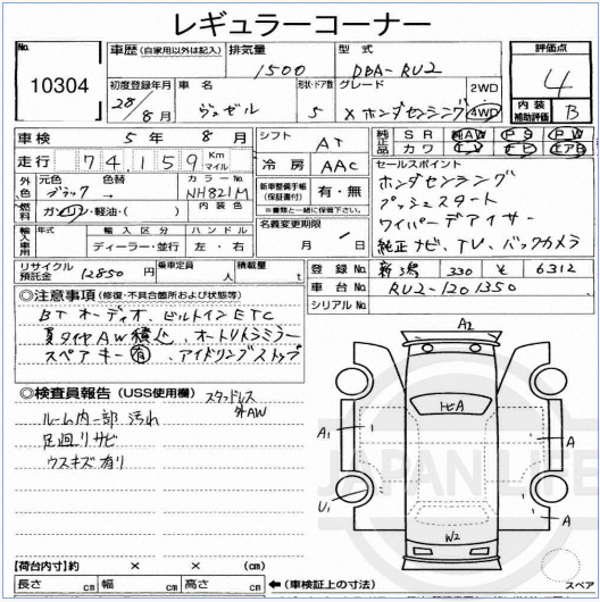 レギュラーコーナー
No.
10304
車歴 (自家用以外は記入) 排気量 1500 型式 DBA-RU2
評価点 4
内装補助評価 B
初度登録年月 28/8月 車名 ヴェゼル 形状・ドア数 5 グレード X ホンダセンシング 2WD 4WD
車検 5年 8月 シフト AT
純正品 SR 純AW PS PW
カワ TV ナビ エアB
走行 74,159 Km マイル 冷房 AAC
セールスポイント
ホンダセンシング
プッシュスタート
ワイパーデアイサー
純正ナビ、TV、バックカメラ
外色 元色 ブラック 色替 → カラーNo. NH821M
新車整備手帳(保証書付) 有・無
※書類と一緒に保管して下さい。
燃料 ガソリン・軽油・( ) 内装色
名義変更期限 月 日
輸入車用 年式 輸入区分 ハンドル
ディーラー・並行 左・右
リサイクル預託金 12850円 乗車定員 人 積載量 t
登録No. 新潟 330 や 6312
車台No. RU2-1201350
シリアルNo.
◎注意事項 (修復・不具合箇所および状態等)
BTオーディオ、ビルトインETC
夏タイヤAW積込、オートリトラミラー
スペアキー有、アイドリングストップ
◎検査員報告 (USS使用欄) スタッドレス
外AW
ルーム内一部汚れ
足廻りサビ
ウスキズ有り
A2
ヒA
A1
A
U1
A
W2
JAPAN LIFE
【荷台内寸】約 × × (cm)
長さ cm 幅 cm 高さ cm
←(車検証上の寸法)
スペア